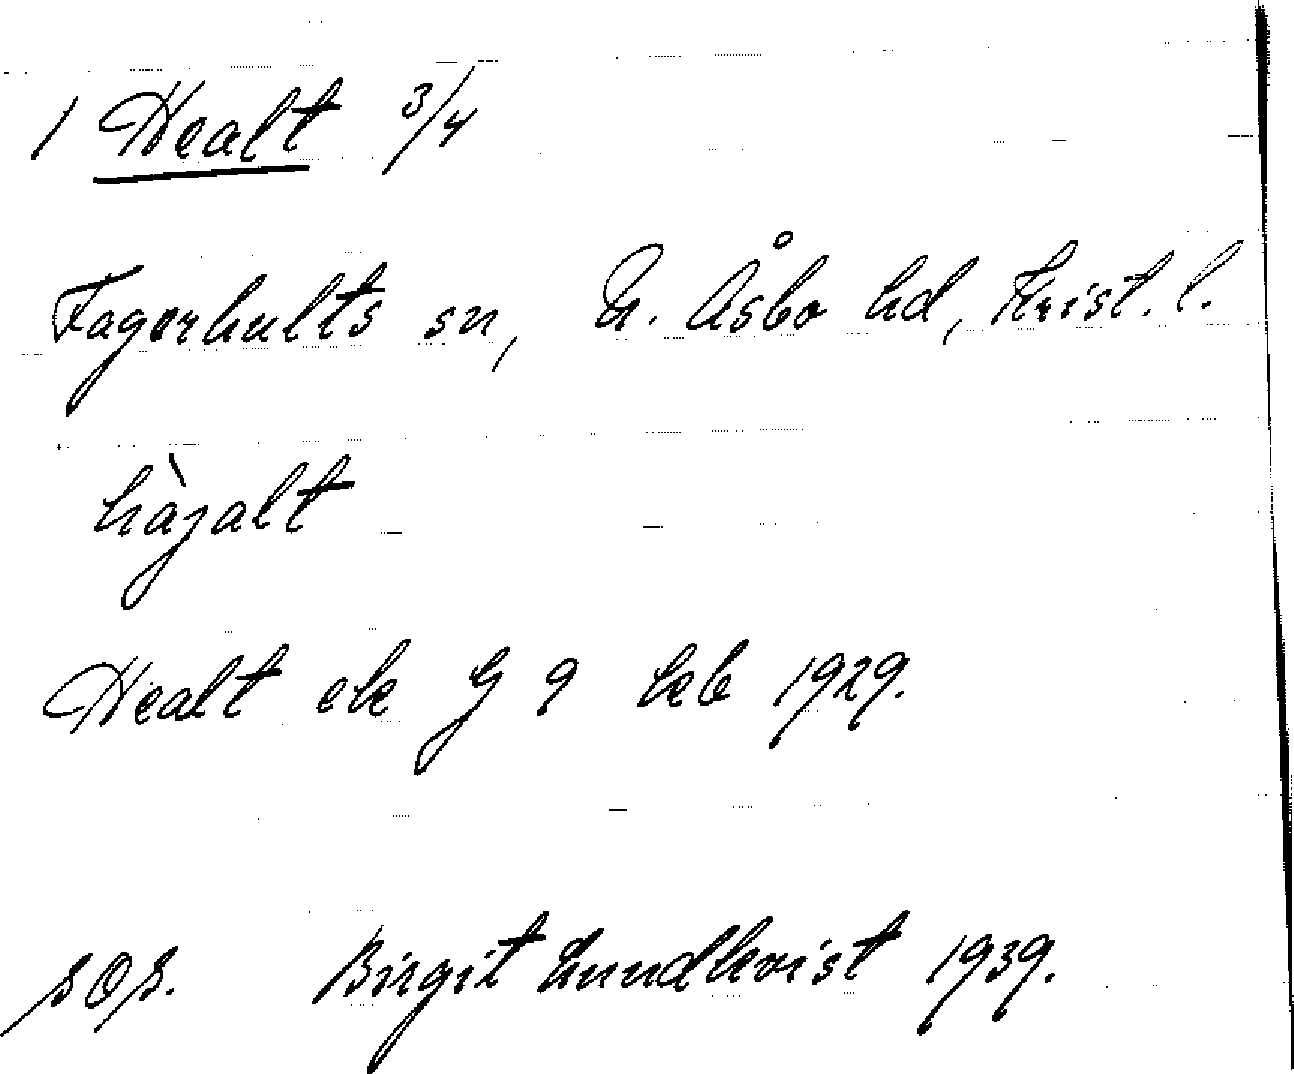 1 Healt 3/4
Fagerhults sn, N. Åsbo hd, Krist. l.
hàjalt
Healt ek G 9 kkb 1929.
SOS. Birgit Lundkvist 1939.